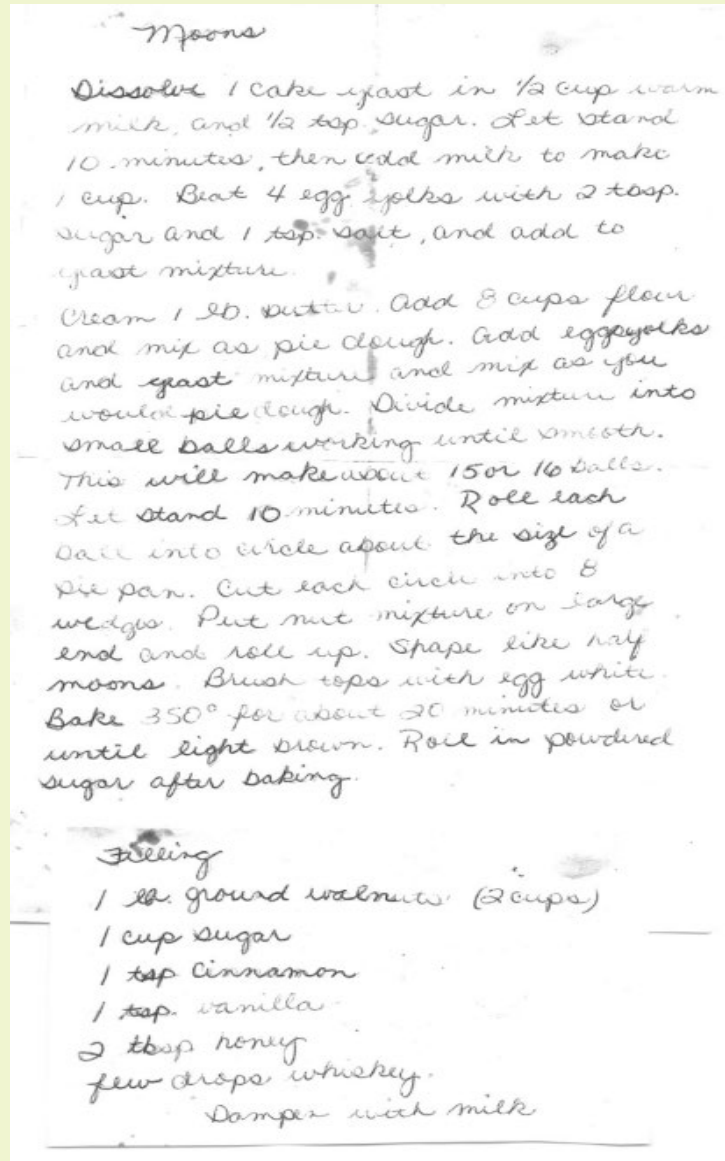 Moons
Dissolve 1 cake yeast in 1/2 cup warm
milk, and 1/2 tsp. sugar. Let stand
10 minutes, then add milk to make
1 cup. Beat 4 egg yolks with 2 tbsp.
sugar and 1 tsp. salt, and add to
yeast mixture.
Cream 1 lb. butter. Add 8 cups flour
and mix as pie dough. Add egg yolks
and yeast mixture and mix as you
would pie dough. Divide mixture into
small balls working until smooth.
This will make about 15 or 16 balls.
Let stand 10 minutes. Roll each
ball into circle about the size of a
pie pan. Cut each circle into 8
wedges. Put nut mixture on large
end and roll up. Shape like half
moons. Brush tops with egg white.
Bake 350° for about 20 minutes or
until light brown. Roll in powdered
sugar after baking.
Filling
1 lb. ground walnuts (2 cups)
1 cup sugar
1 tsp cinnamon
1 tsp. vanilla
2 tbsp honey
few drops whiskey.
Dampen with milk